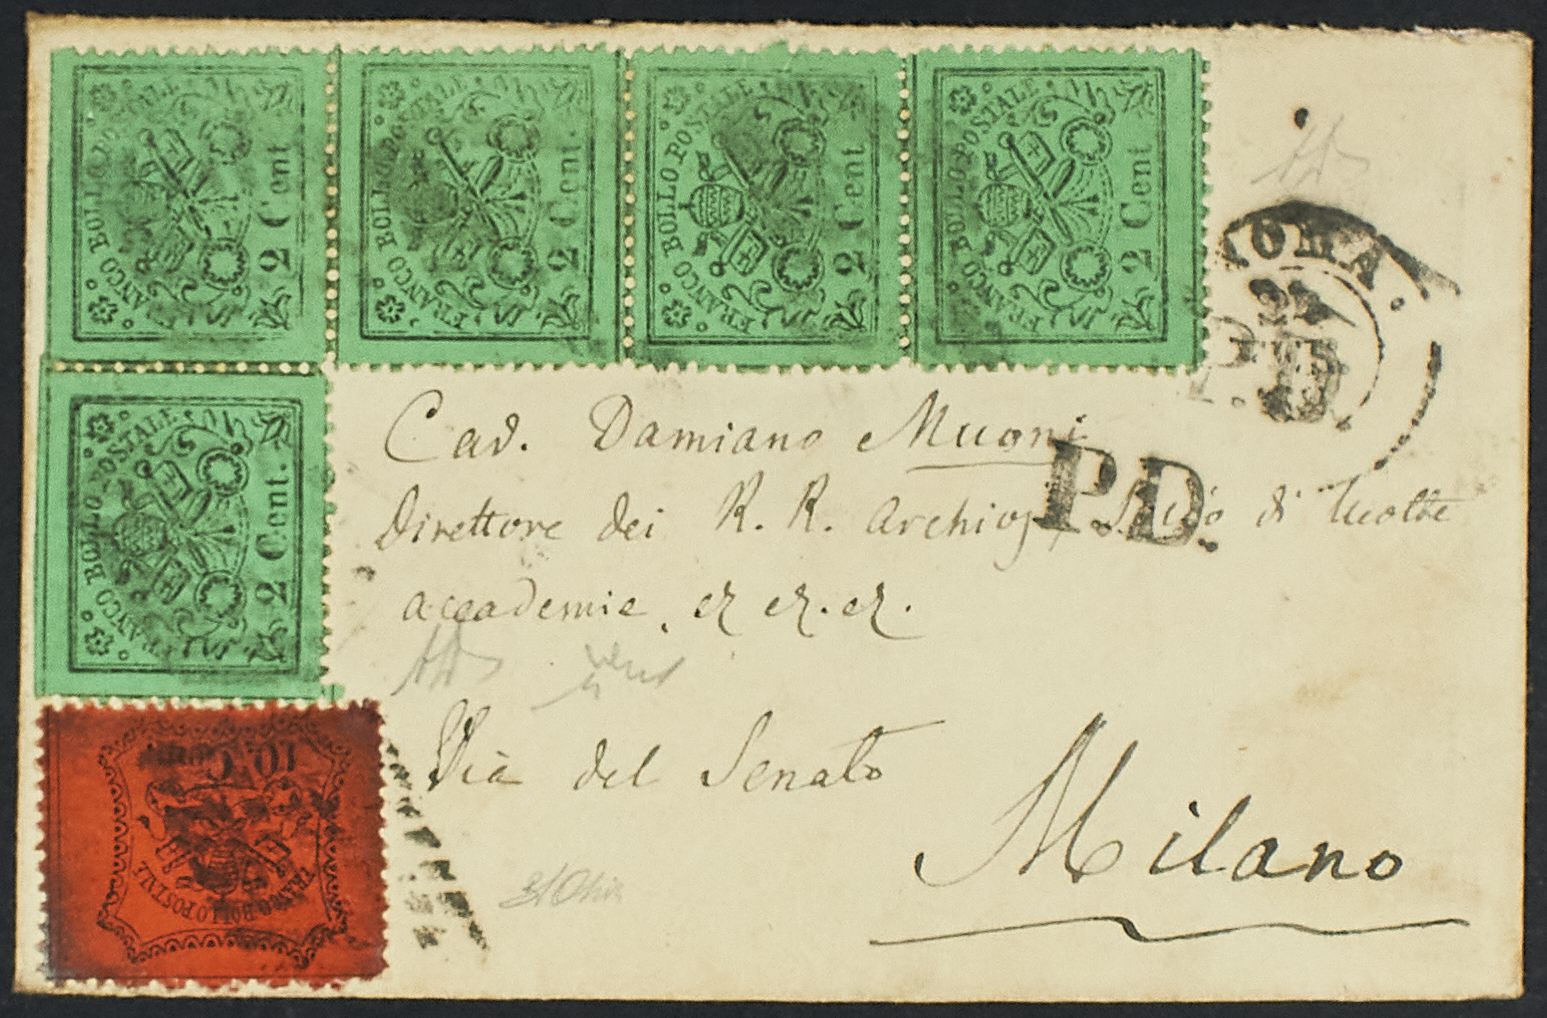 FRANCO BOLLO POSTALE
2 Cent.
FRANCO BOLLO POSTALE
2 Cent.
FRANCO BOLLO POSTALE
2 Cent.
FRANCO BOLLO POSTALE
2 Cent.
FRANCO BOLLO POSTALE
2 Cent.
ROMA
P.D.
Cad. Damiano Muoni
P.D.
Direttore dei R. R. Archivj, di
accademie
Via del Senato
10. Cent.
FRANCO BOLLO POSTALE
Milano